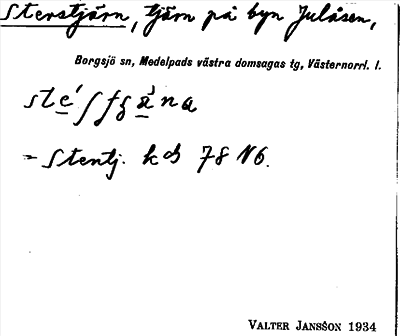 Sterstjärn, tjärn på byn Julåsen,
Borgsjö sn, Medelpads västra domsagas tg, Västernorrl. l.
= Stentj. kds 78 N6.
VALTER JANSSON 1934